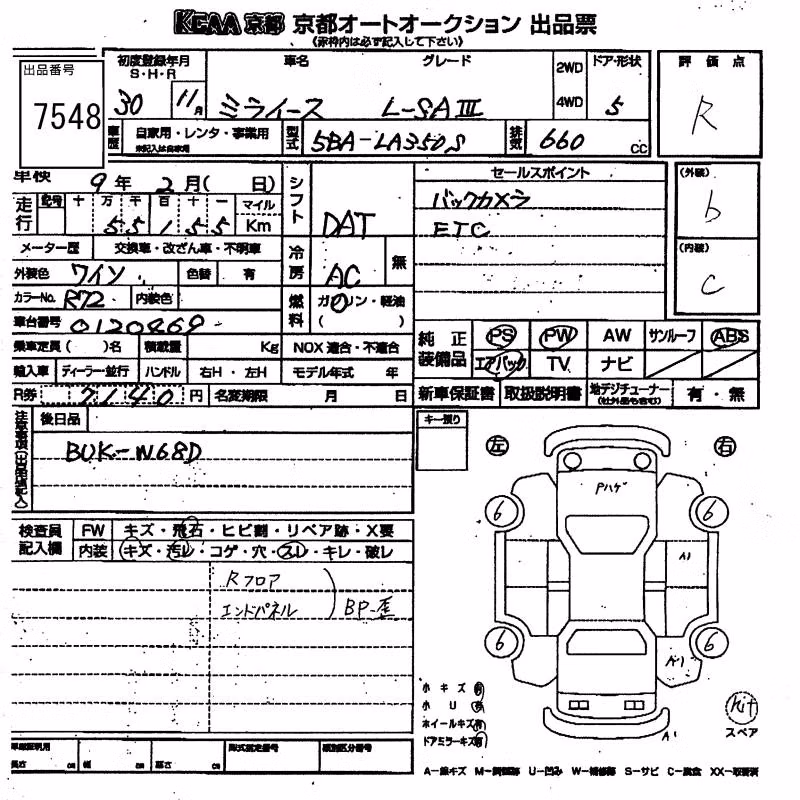 KCAA 京都 京都オートオークション 出品票
(赤枠内は必ず記入して下さい)
出品番号
7548
初度登録年月
S・H・R
30 11月
車名
ミライース
グレード
L-SAⅢ
2WD
4WD
ドア・形状
5
評価点
R
車歴
自家用・レンタ・事業用
未記入は自家用
型式
5BA-LA350S
排気
660 CC
車検 9年 2月( 日)
シフト
DAT
セールスポイント
バックカメラ
ETC
(外装)
b
(内装)
C
走行
記号 十 万 千 百 十 一
55155
マイル
Km
メーター歴 交換車・改ざん車・不明車
冷房
AC
無
外装色 ワイン 色替 有
カラーNo. R72 内装色
燃料
ガソリン・軽油
( )
車台番号 0120469
乗車定員( )名 積載量 Kg NOX適合・不適合
輸入車 ディーラー・並行 ハンドル 右H・左H モデル年式 年
R券 7140 円 名変期限 月 日
純正装備品
PS PW AW サンルーフ ABS
エアバック TV ナビ
新車保証書 取扱説明書 地デジチューナー 有・無
注意事項(出品店記入)
後日品
BUK-W68D
キー預り
左 右
検査員記入欄
FW キズ・飛石・ヒビ割・リペア跡・X要
内装 キズ・汚レ・コゲ・穴・スレ・キレ・破レ
Rフロア
エンドパネル
BP-歪
Pハゲ
6 6
A1
6 6
A1
A1
小キズ有
小U有
ホイールキズ有
ドアミラーキズ有
kit
スペア
車庫証明用
長さ cm 幅 cm 高さ cm
型式指定番号 類別区分番号
A-線キズ U-凹み S-サビ C-腐食